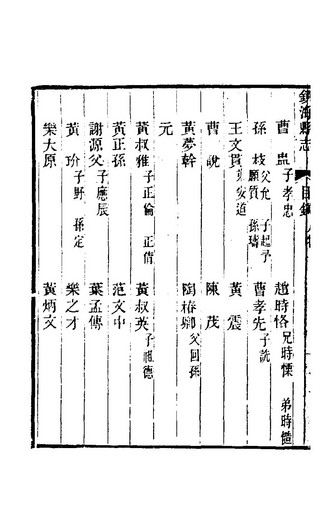 鎮海縣志 目錄 人物
曹盅子孝忠 趙時恪兄時慄 弟時𢡟
孫枝父允 子起予 願質 孫璹 曹孝先子說
王文貫 安道 黃震
曹說 陳茂
黃夢幹 陶椿卿父回孫
元
黃叔雅子正倫 正倩 黃叔英子祖德
黃正孫 范文中
謝源父子應辰 葉孟傳
黃玠子野 孫定 樂之才
樂大原 黃炳文